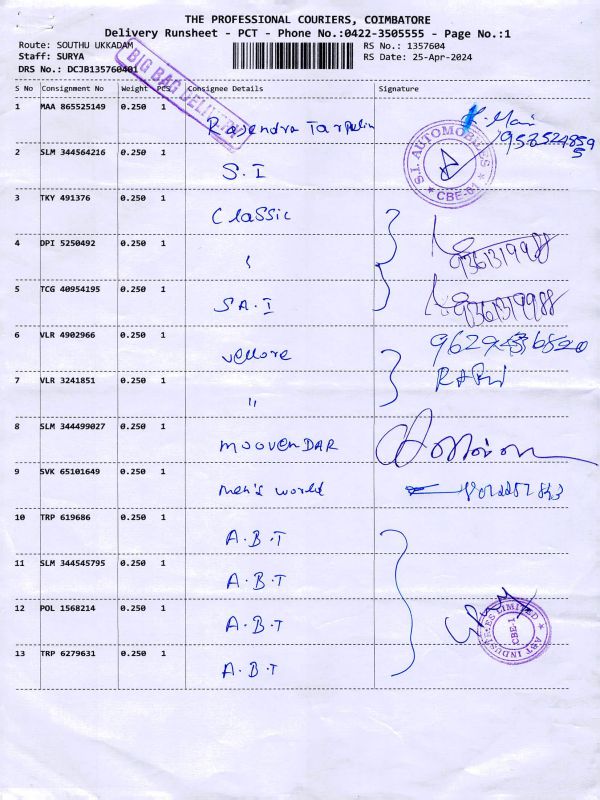 THE PROFESSIONAL COURIERS, COIMBATORE
Delivery Runsheet - PCT - Phone No.:0422-3505555 - Page No.:1
Route: SOUTHU UKKADAM
RS No.: 1357604
Staff: SURYA
RS Date: 25-Apr-2024
DRS No.: DCJB135760401
BIG BAG DELIVERY
S No Consignment No Weight PCS Consignee Details Signature
1 MAA 865525149 0.250 1 Rajendra Tarpulin
2 SLM 344564216 0.250 1 S.I
S.I. AUTOMOBILES
CBE-01
3 TKY 491376 0.250 1 Classic
4 DPI 5250492 0.250 1 "
9361319988
5 TCG 40954195 0.250 1 S.A.I
9361319988
6 VLR 4902966 0.250 1 vellore
7 VLR 3241851 0.250 1 "
8 SLM 344499027 0.250 1 MOOVENDAR
9 SVK 65101649 0.250 1 Men's world
10 TRP 619686 0.250 1 A.B.T
11 SLM 344545795 0.250 1 A.B.T
12 POL 1568214 0.250 1 A.B.T
ABT INDUSTRIES LIMITED
CBE-1
13 TRP 6279631 0.250 1 A.B.T